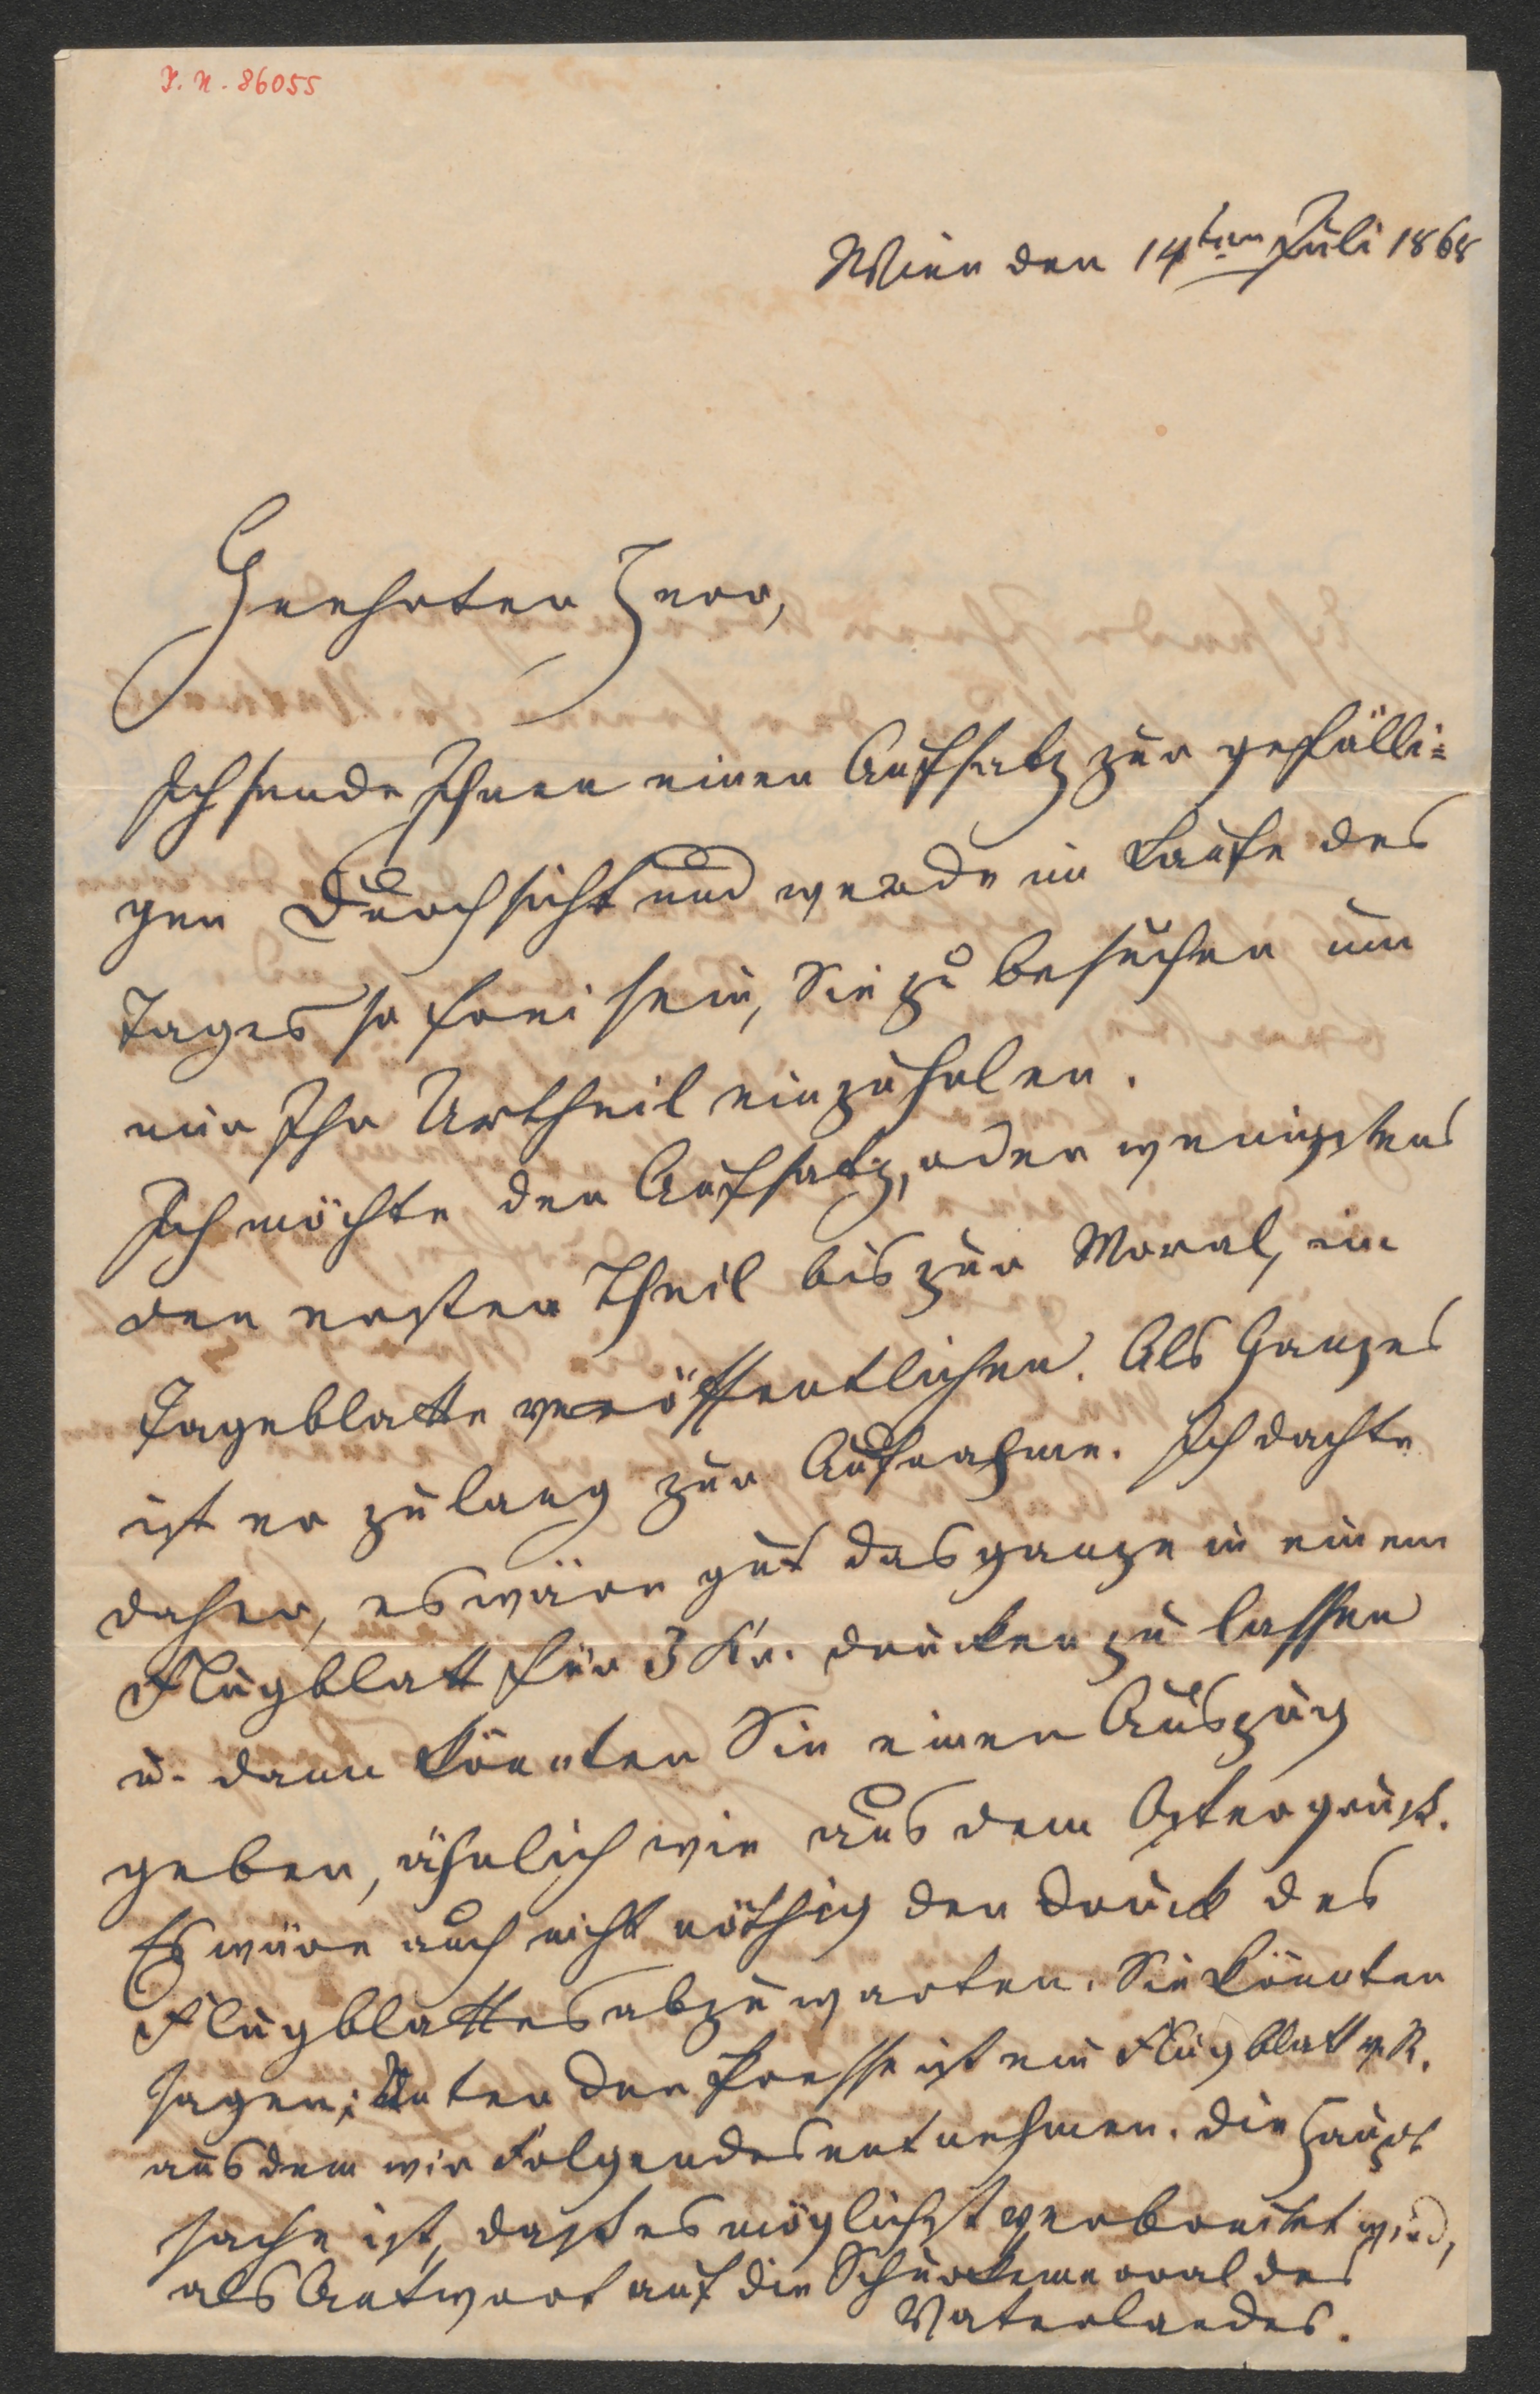 J. N. 86055
Wien den 14ten Juli 1868
Geehrter Herr,
Ich sende Ihnen einen Aufsatz zur gefälli=
gen Durchsicht und werde im Laufe des
Tages so frei sein, Sie zu besuchen um
mir Ihr Urtheil einzuholen.
Ich möchte den Aufsatz, oder wenigstens
den ersten Theil bis zur Moral, im
Tageblatte veröffentlichen. Als Ganzes
ist er zu lang zur Aufnahme. Ich dachte
daher, es wäre gut das ganze in einem
Flugblatt für 3 Kr. drucken zu lassen
u. dann könnten Sie einen Auszug
geben, ähnlich wie aus dem Ostergruß.
Es wäre auch nicht nöthig den Druck des
Flugblattes abzuwarten. Sie könnten
sagen: Unter der Presse ist ein Flugblatt v. R.
aus dem wir Folgendes entnehmen. Die Haupt
sache ist, daß es möglichst verbreitet wird,
als Antwort auf die Schurkenmoral des
Vaterlandes.